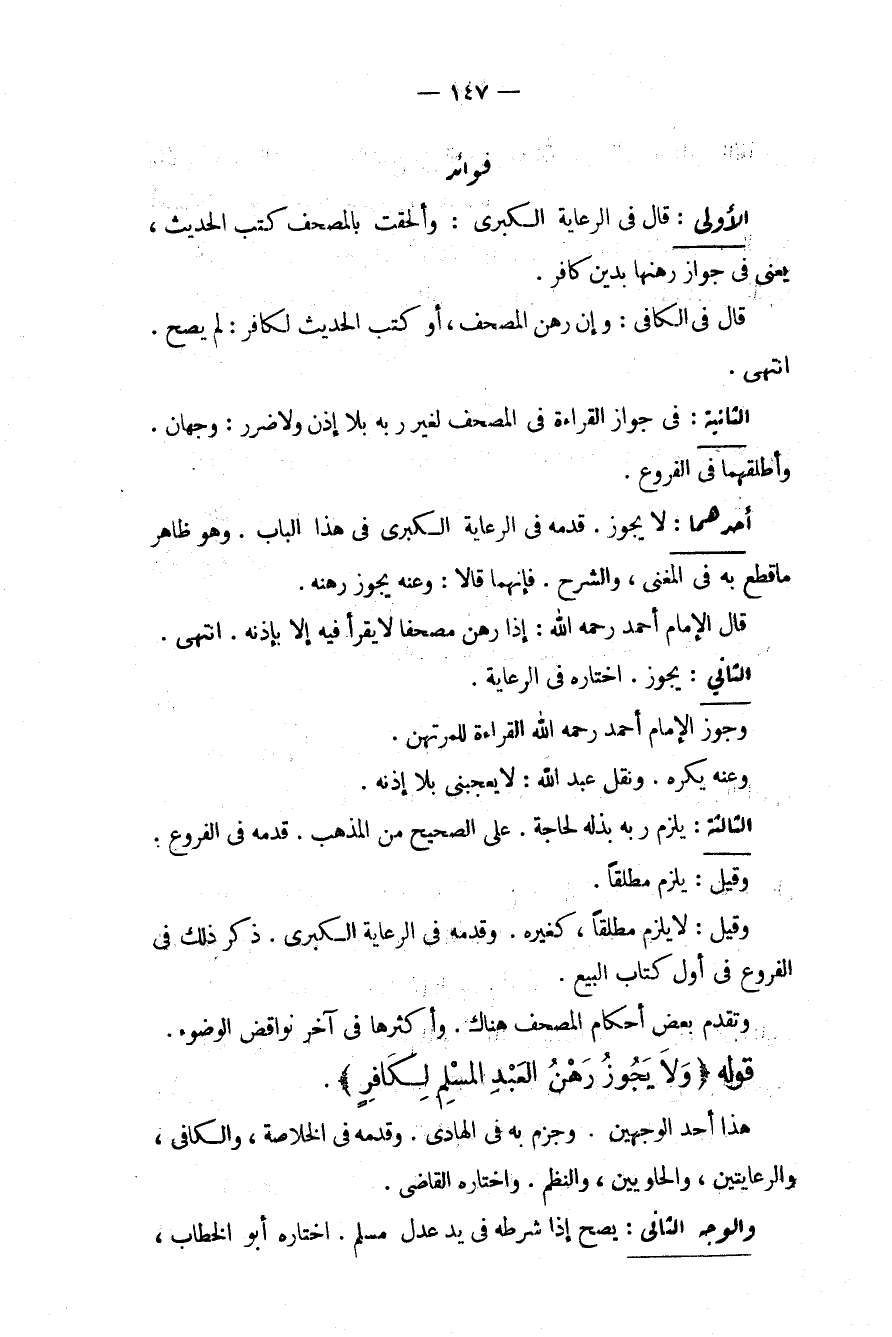 — ١٤٧ —
فوائد
الأولى : قال فى الرعاية الكبرى : وألحقت بالمصحف كتب الحديث ،
يعنى فى جواز رهنها بدين كافر .
قال فى الكافى : وإن رهن المصحف ، أو كتب الحديث لكافر : لم يصح .
انتهى .
الثانية : فى جواز القراءة فى المصحف لغير ربه بلا إذن ولا ضرر : وجهان .
وأطلقهما فى الفروع .
أحدهما : لا يجوز . قدمه فى الرعاية الكبرى فى هذا الباب . وهو ظاهر
ماقطع به فى المغنى ، والشرح . فإنهما قالا : وعنه يجوز رهنه .
قال الإمام أحمد رحمه الله : إذا رهن مصحفا لايقرأ فيه إلا بإذنه . انتهى .
الثاني : يجوز . اختاره فى الرعاية .
وجوز الإمام أحمد رحمه الله القراءة للمرتهن .
وعنه يكره . ونقل عبد الله : لايعجبنى بلا إذنه .
الثالثة : يلزم ربه بذله لحاجة . على الصحيح من المذهب . قدمه فى الفروع .
وقيل : يلزم مطلقاً .
وقيل : لايلزم مطلقاً ، كغيره . وقدمه فى الرعاية الكبرى . ذكر ذلك فى
الفروع فى أول كتاب البيع .
وتقدم بعض أحكام المصحف هناك . وأكثرها فى آخر نواقض الوضوء .
قوله ﴿ وَلاَ يَجُوزُ رَهْنُ العَبْدِ المسْلِمِ لِكَافِرٍ ﴾ .
هذا أحد الوجهين . وجزم به فى الهادى . وقدمه فى الخلاصة ، والكافى ،
والرعايتين ، والحاويين ، والنظم . واختاره القاضى .
والوجه الثانى : يصح إذا شرطه فى يد عدل مسلم . اختاره أبو الخطاب ،